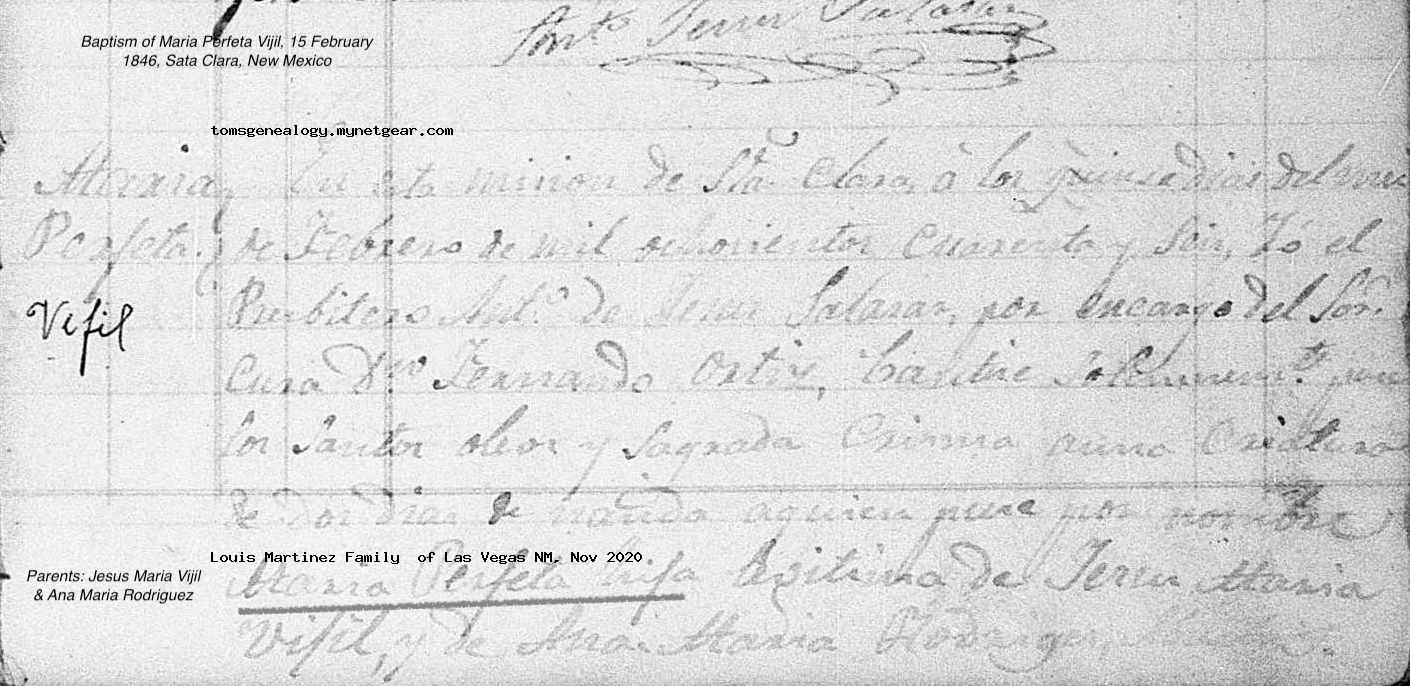 Anto. Jesus Salasar
Baptism of Maria Perfeta Vijil, 15 February
1846, Sata Clara, New Mexico
tomsgenealogy.mynetgear.com
Maria
Perfeta.
Vijil
En esta mision de Sta. Clara, á los quinse dias del mes
de Febrero de mil ochosientos cuarenta y seis, Yó el
Presbitero Anto. de Jesus Salasar, por encargo del Sor.
Cura Dn. Fernando Ortiz, bautisé solemnemte. puse
los santos oleos y sagrada Crisma auna Criatura
de dos dias de nasida aquien puse por nombre
Louis Martinez Family of Las Vegas NM, Nov 2020
Maria Perfeta hija legitima de Jesus Maria
Vijil, y de Ana Maria Rodriges,
Parents: Jesus Maria Vijil
& Ana Maria Rodriguez